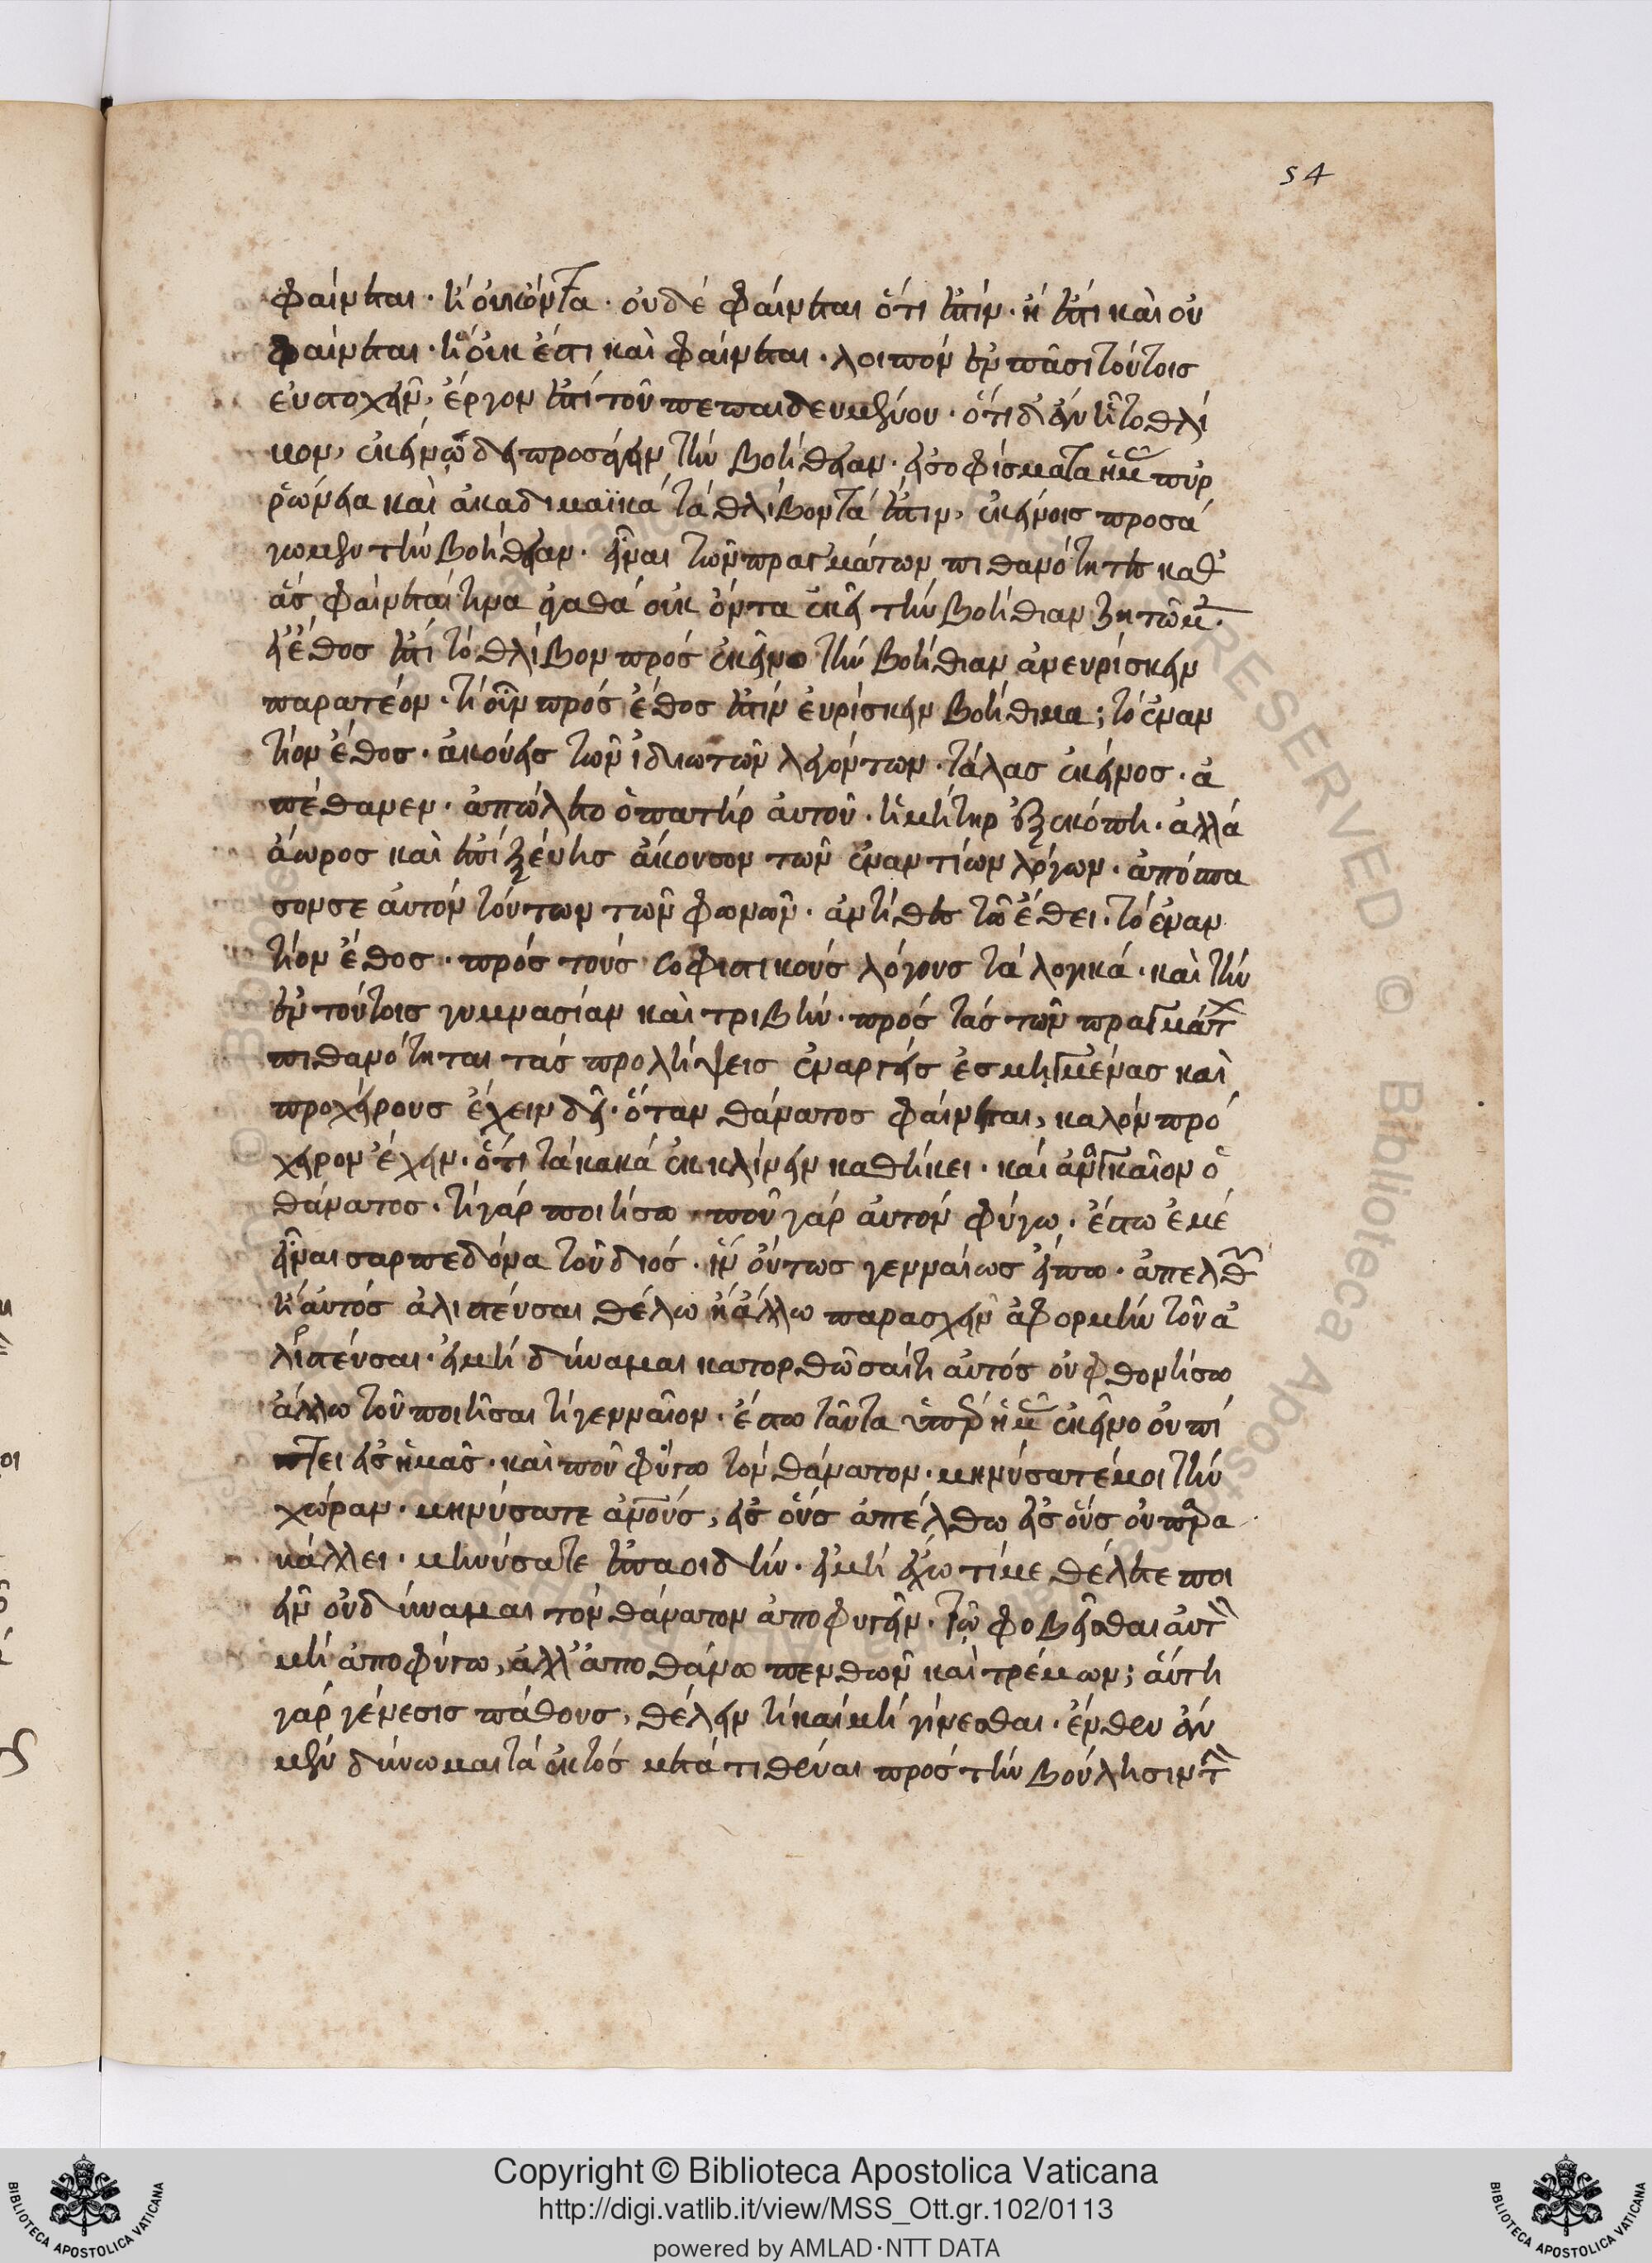 54
φαίνεται· ἢ οὐκ ὄντα· οὐδὲ φαίνεται ὅτι ἐστίν· ἢ ἔστι καὶ οὐ
φαίνεται· ἢ οὐκ ἔστι καὶ φαίνεται· λοιπὸν ἐν πᾶσι τούτοις
εὐστοχεῖν, ἔργον ἐστὶ τοῦ πεπαιδευμένου· ὅτι δ' ἂν ᾖ τὸ θλί
βον, ἐκείνῳ δεῖ προσάγειν τὴν βοήθειαν· εἰ σοφίσματα ἡμᾶς πυρ
ρώνεια καὶ ἀκαδημαϊκὰ τὰ θλίβοντά ἐστιν, ἐκείνοις προσά
γωμεν τὴν βοήθειαν· εἰ αἱ τῶν πραγμάτων πιθανότητες καθ'
ἃς φαίνεταί τινα ἀγαθὰ οὐκ ὄντα ἐκεῖ τὴν βοήθειαν ζητῶμεν·
εἰ ἔθος ἐστὶ τὸ θλίβον πρὸς ἐκεῖνο τὴν βοήθιαν ἀνευρίσκειν
πειρατέον· τί οὖν πρὸς ἔθος ἔστιν εὑρίσκειν βοήθημα; τὸ ἐναν
τίον ἔθος· ἀκούεις τῶν ἰδιωτῶν λεγόντων· τάλας ἐκεῖνος· ἀ
πέθανεν· ἀπώλετο ὁ πατὴρ αὐτοῦ· ἡ μήτηρ ἐξεκόπη· ἀλλὰ
ἄωρος καὶ ἐπὶ ξένης ἄκουσον τῶν ἐναντίων λόγων· ἀπόσπα
σον σεαυτὸν τούτων τῶν φωνῶν· ἀντίθες τῷ ἔθει· τὸ ἐναν
τίον ἔθος· πρὸς τοὺς σοφιστικοὺς λόγους τὰ λογικά· καὶ τὴν
ἐν τούτοις γυμνασίαν καὶ τριβήν· πρὸς τὰς τῶν πραγμάτων
πιθανότηται τὰς προλήψεις ἐναργεῖς ἐσμηγμένας καὶ
προχείρους ἔχειν δεῖ· ὅταν θάνατος φαίνεται, κακὸν πρό
χειρον ἔχειν· ὅτι τὰ κακὰ ἐκκλίνειν καθήκει· καὶ ἀναγκαῖον ὁ
θάνατος· τί γὰρ ποιήσω· ποῦ γὰρ αὐτὸν φύγω· ἔστω ἐμὲ
εἶναι σαρπεδόνα τοῦ διός· ἵν' οὕτως γενναίως εἴπω· ἀπελθὼν
ἢ αὐτὸς ἀριστεῦσαι θέλω ἢ ἄλλῳ παρασχεῖν ἀφορμὴν τοῦ ἀ
ριστεῦσαι· εἰ μὴ δύναμαι κατορθῶσαί τι αὐτὸς οὐ φθονήσω
ἄλλῳ τοῦ ποιῆσαι τί γενναῖον· ἔστω ταῦτα ὑπὲρ ἡμᾶς ἐκεῖνο οὐ πί
πτει εἰς ἡμᾶς· καὶ ποῦ φύγω τὸν θάνατον· μηνύσατέ μοι τὴν
χώραν· μηνύσατε ἀνθρώπους, εἰς οὓς ἀπέλθω εἰς οὓς οὐ παρα
βάλλει· μηνύσατε ἐπαοιδήν· εἰ μὴ ἔχω τί με θέλετε ποι
εῖν οὐ δύναμαι τὸν θάνατον ἀποφυγεῖν· τὸ φοβεῖσθαι αὐτὸν
μὴ ἀποφύγω, ἀλλ' ἀποθάνω πενθῶν καὶ τρέμων; αὕτη
γὰρ γένεσις πάθους, θέλειν τί καὶ μὴ γίνεσθαι· ἔνθεν ἂν
μὲν δύνωμαι τὰ ἐκτὸς μετατιθέναι πρὸς τὴν βούλησιν τὴν
Copyright © Biblioteca Apostolica Vaticana
http://digi.vatlib.it/view/MSS_Ott.gr.102/0113
powered by AMLAD·NTT DATA